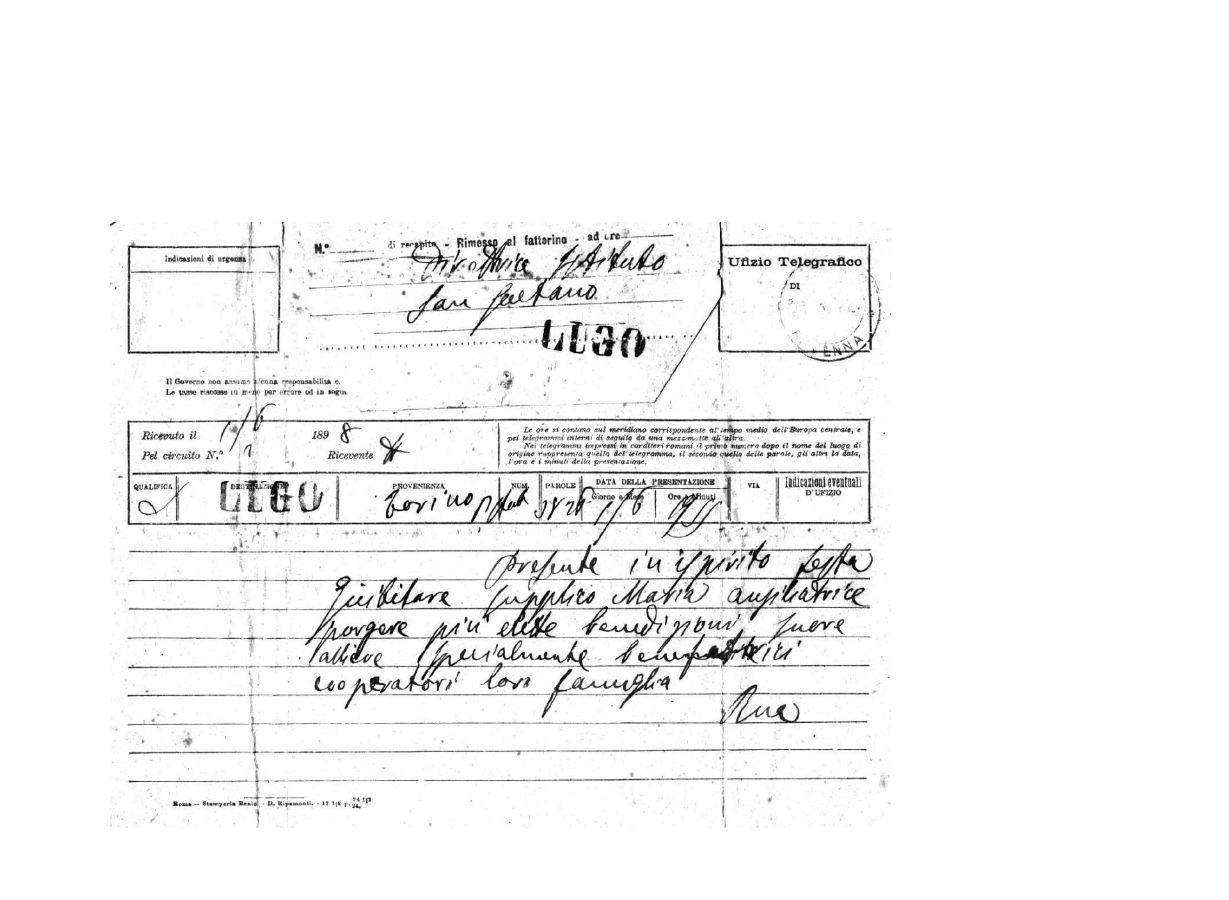 N.° di recapito - Rimesso al fattorino - ad ore
Indicazioni di urgenza
Direttrice Istituto
San Gaetano
LUGO
Ufizio Telegrafico
DI
ENNA
Il Governo non assume alcuna responsabilità
Le tasse riscosse in meno per errore od in
Ricevuto il 1/6 1898
Pel circuito N.° Ricevente
Le ore si contano sul meridiano corrispondente al tempo medio dell'Europa centrale, e
pei telegrammi interni di seguito da una mezzanotte all'altra.
Nei telegrammi impressi in caratteri romani il primo numero dopo il nome del luogo di
origine rappresenta quello del telegramma, il secondo quello delle parole, gli altri la data,
l'ora e i minuti della presentazione.
QUALIFICA DESTINAZIONE PROVENIENZA NUM. PAROLE DATA DELLA PRESENTAZIONE VIA Indicazioni eventuali
Giorno e Mese Ore e Minuti D'UFIZIO
LUGO Torino 26 1/6
presente in ispirito festa
Giubilare supplico Maria ausiliatrice
porgere più elette benedizioni suore
allieve specialmente benefattrici
cooperatori loro famiglia
Rua
Roma — Stamperia Reale - D. Ripamonti. - 17 1|2 p. 24 1|2